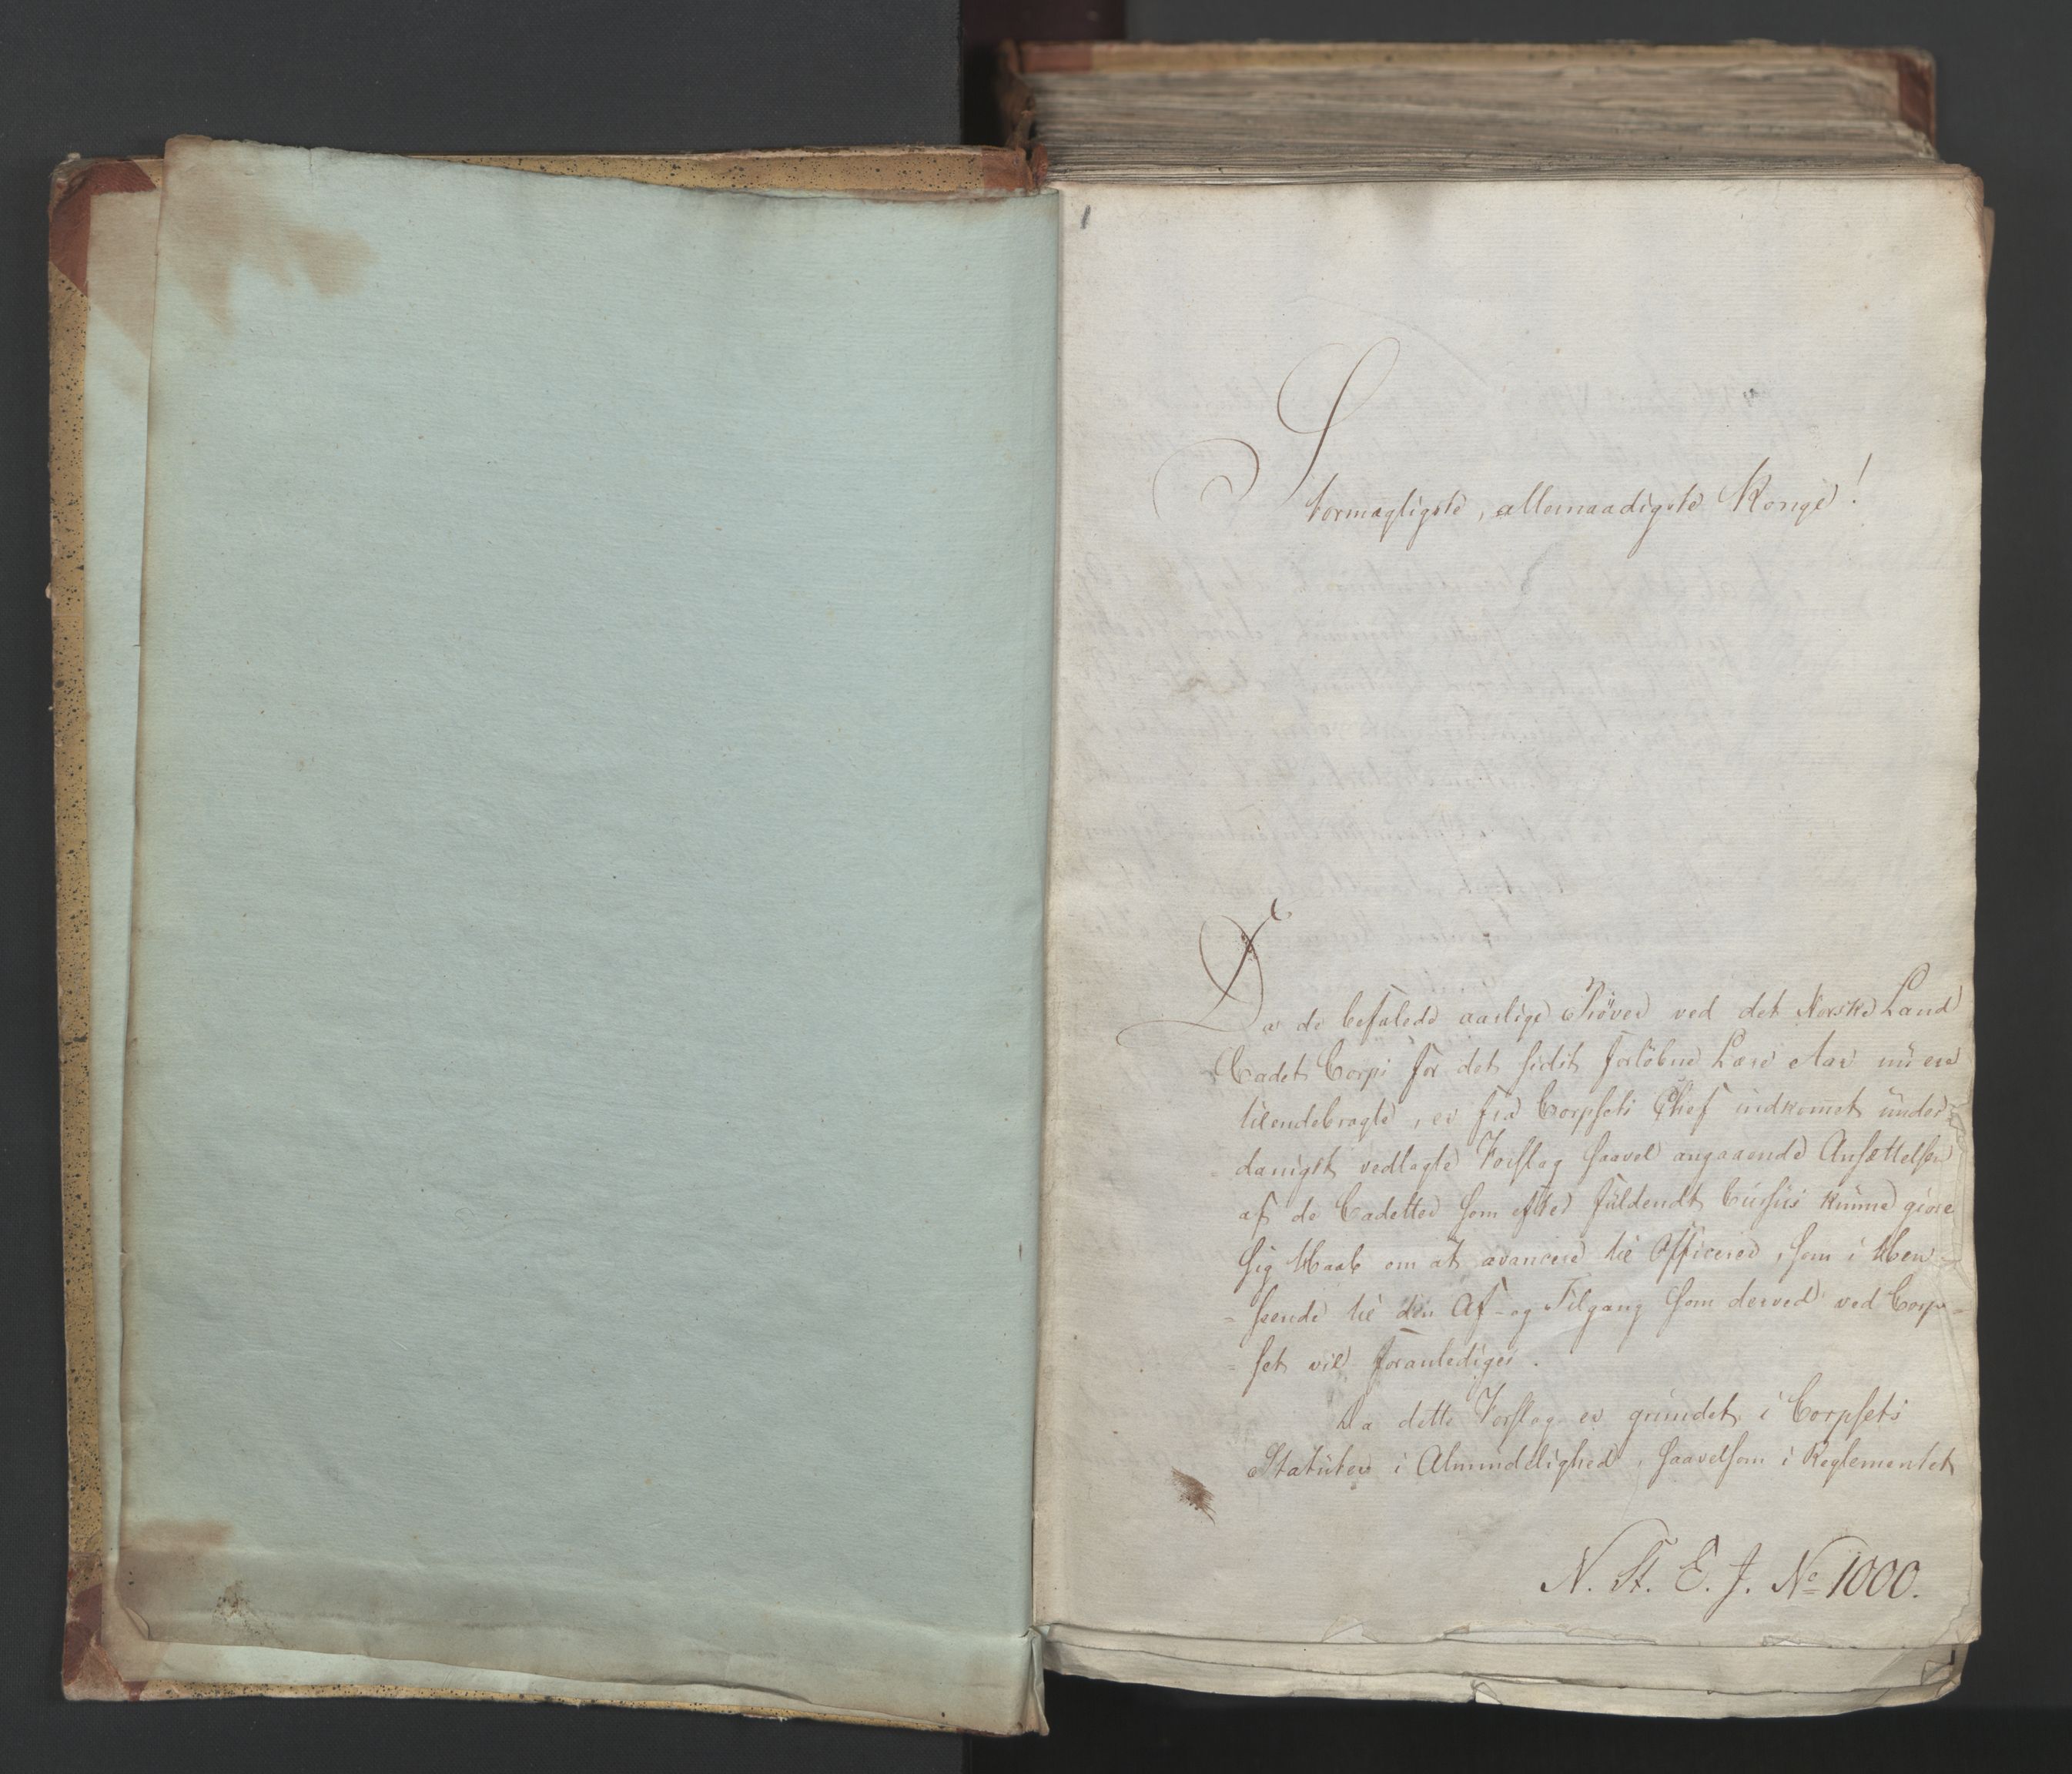 1
Stormægtigste, allernaadigste Konge!
Da de befalede aarlige Prøver ved det Norske Land
Cadet Corps for det sidst forløbne Læse Aar nu ere
tilendebragte, er fra Corpsets Chef indkommet under-
danigst vedlagte Forslag saavel angaaende Ansættelsen
af de Cadetter som efter fuldendt Cursus kunne giøre
sig Haab om at avancere til Officerer, som i Hen-
=seende til den Af- og Tilgang som derved ved Corp=
=set vil foranlediges.
Da dette Forslag er grundet i Corpsets
Statuter i Almindelighed, saavelsom i Reglementet
N. St. E. J. No 1000.